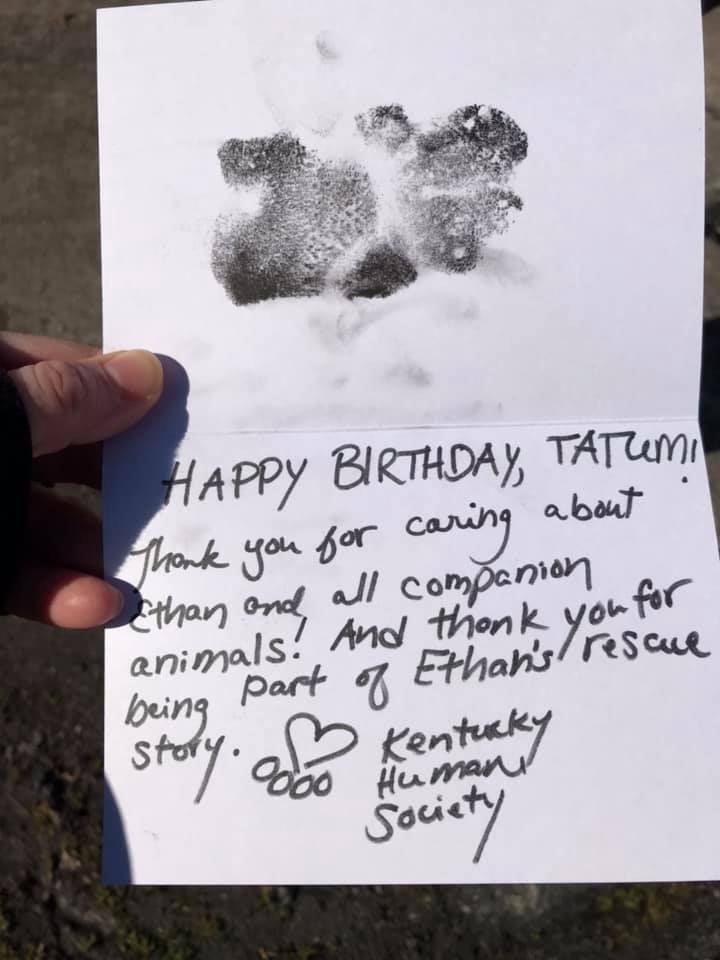 HAPPY BIRTHDAY, TATUM!
Thank you for caring about
Ethan and all companion
animals! And thank you for
being part of Ethan's rescue
story.
Kentucky
Humane
Society